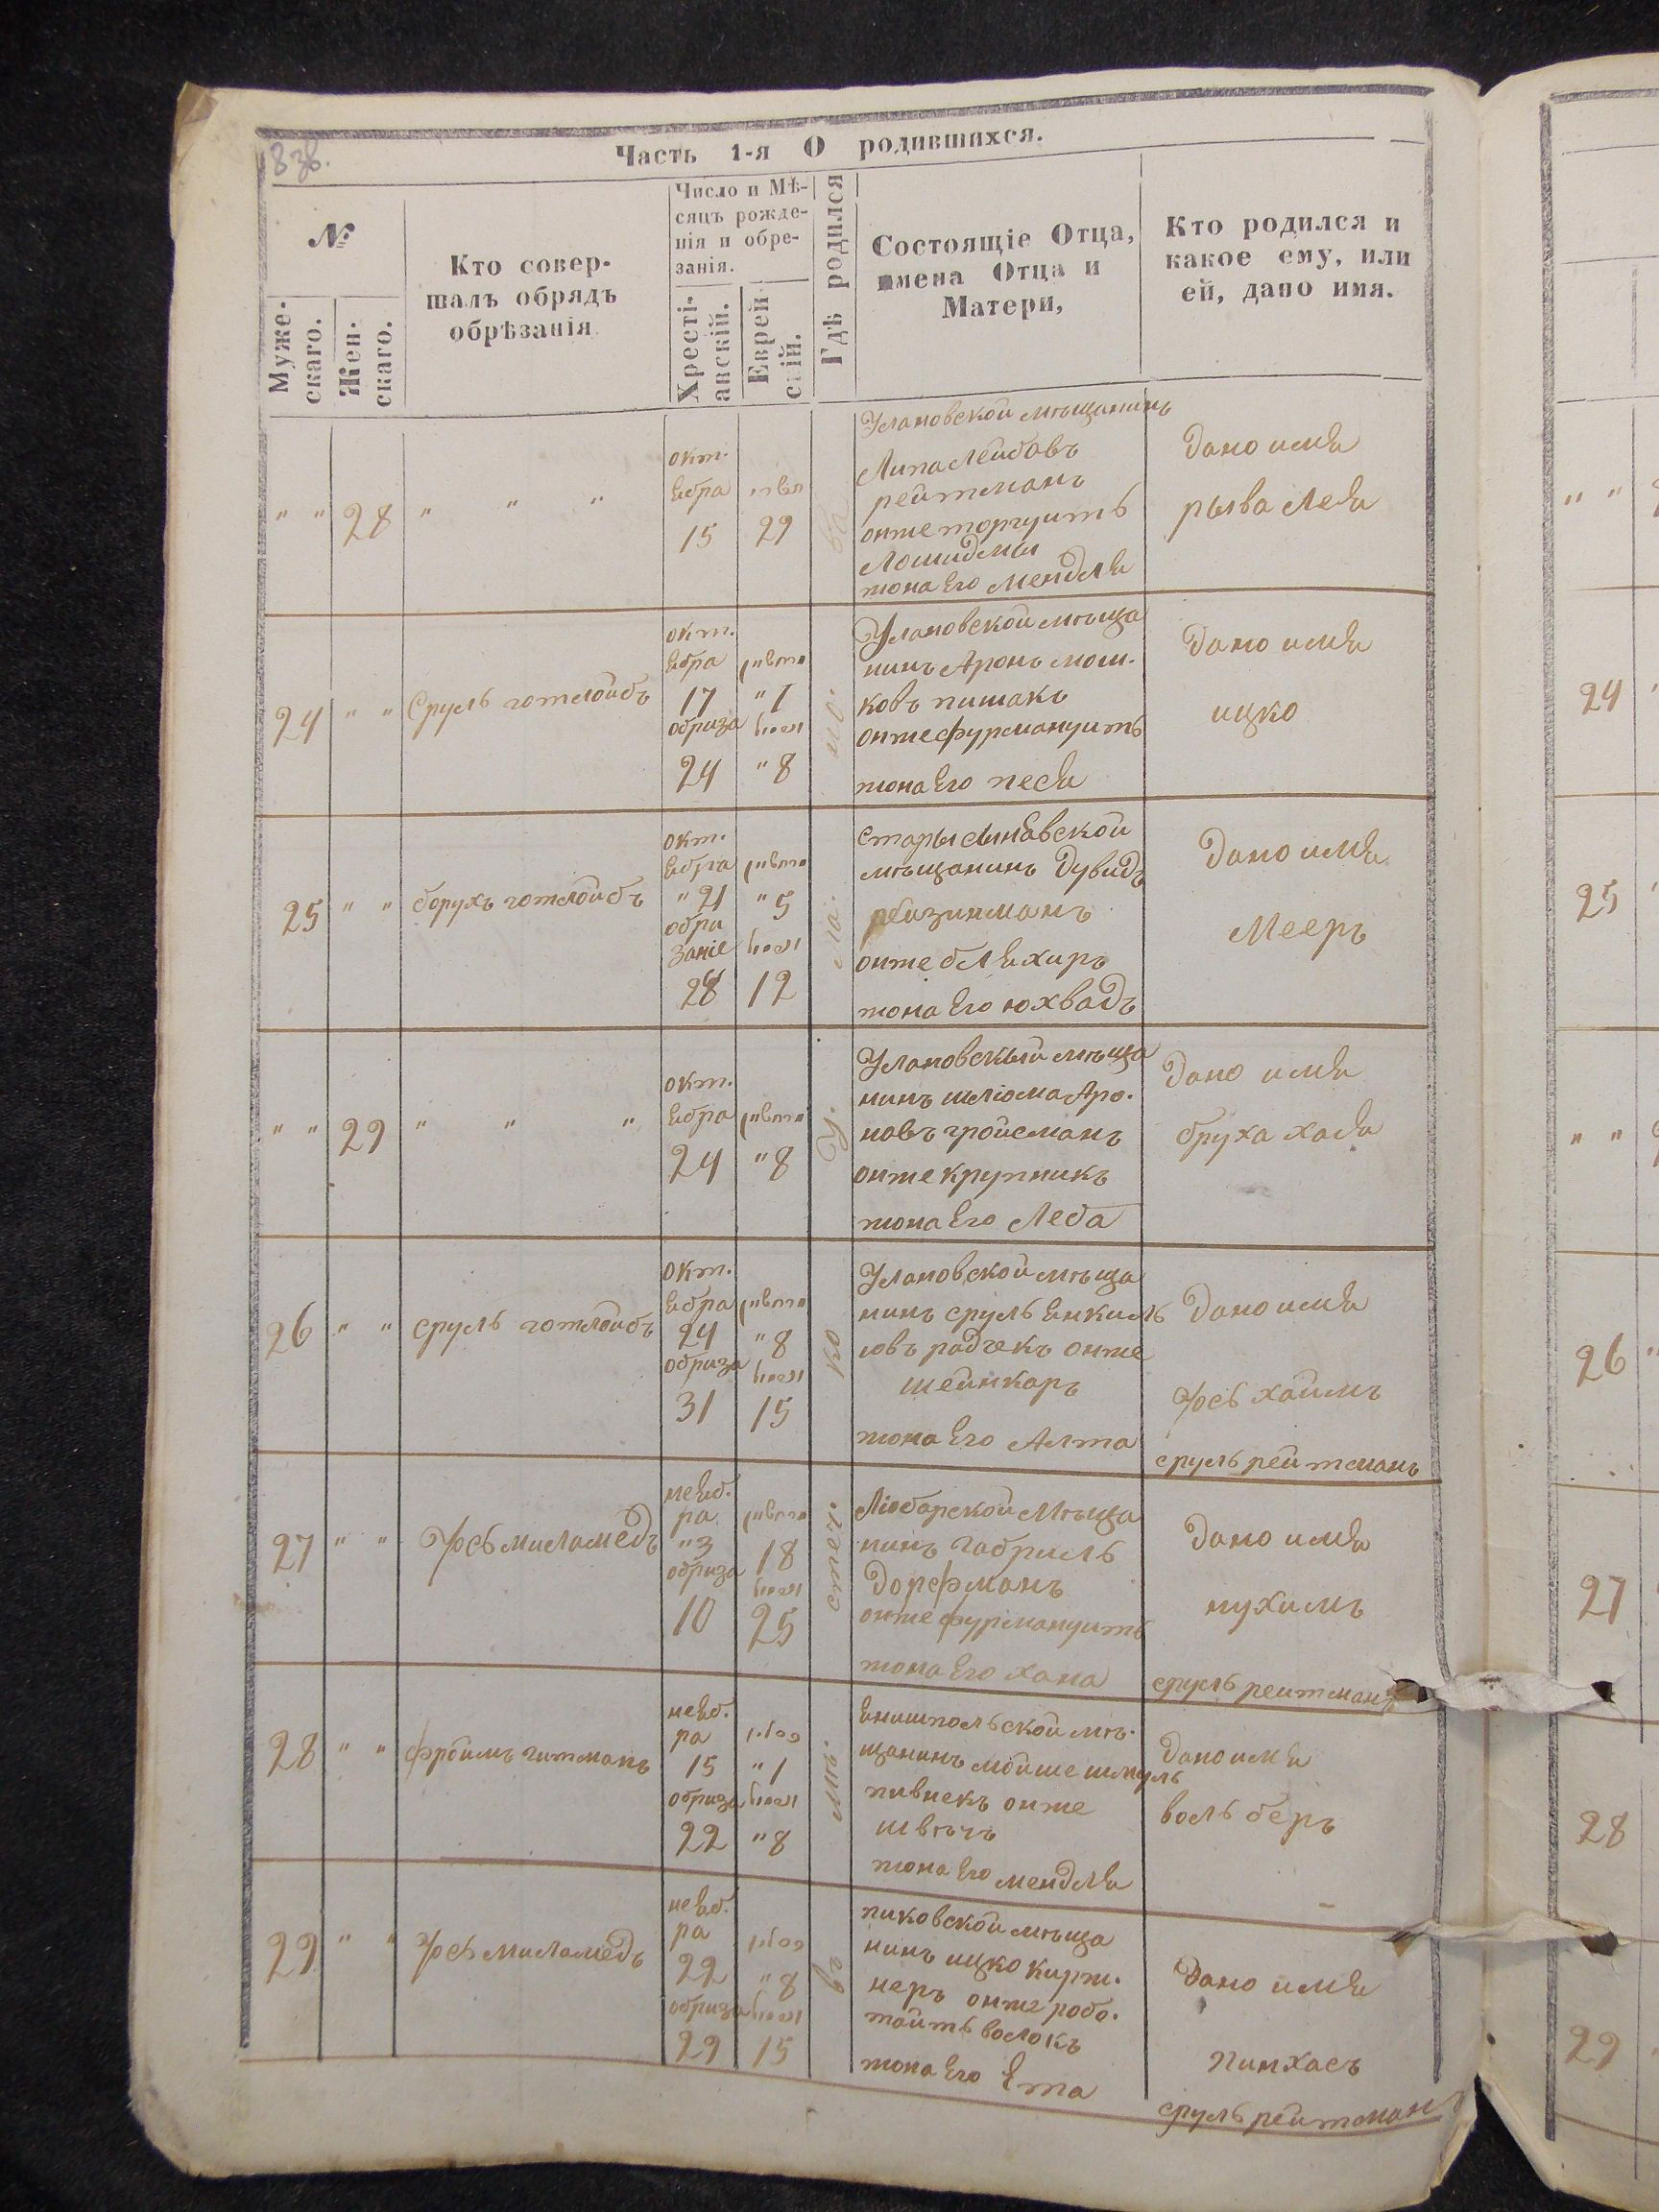 8 зв.
Часть 1-я О родившихся.
№
Муже-
скаго.
Жен-
скаго.
Кто совер-
шалъ обрядъ
обрѣзанія
Число и Мѣ-
сяцъ рожде-
нія и обре-
занія.
Хресті-
анскій.
Еврей
скій.
Гдѣ родился
Состоящіе Отца,
имена Отца и
Матери,
Кто родился и
какое ему, или
ей, дано имя.
" " 28 " " "
окт.
ебра
15
29
Улановской мѣщанинъ
Липа Лейбовъ
рейтманъ
онже торгуить
Лошидмы
жона Его Мендля
Дано имя
рыва Лея
24 " " Сруль готлойбъ
окт.
ебра
17 "1
обриза
24 "8
Улановской мѣща
нинъ Аронъ мош-
ковъ пишакъ
онже фурмануить
жона Его песя
Дано имя
ицко
25 " " борухъ готлойбъ
окт.
ебра
"21 "5
обри
заніе
28 12
старысинявской
мѣщанинъ Дувидъ
рейзинманъ
онже бляхиръ
жона Его юхвадъ
Дано имя
Мееръ
" " 29 " " "
окт.
ебра
24 "8
Улановскый мѣща
нинъ шліома Аро-
новъ гройсманъ
онже крупникъ
жона Его Леба
Дано имя
бруха хася
26 " " сруль готлойбъ
окт.
ебра
24 "8
обриза
31 15
Улановской мѣща
нинъ сруль Енкиль
ювъ радчекъ онже
шейнкаръ
жона Его Алта
Дано имя
Іось хаимъ
сруль рейтманъ
27 " " Іось миламедъ
неяб.
ра
"3 18
обриза
10 25
Любарской Мѣща
нинъ габриль
Дорфманъ
онже фурмануить
жона Его хана
Дано имя
нухимъ
сруль рейтманъ
28 " " фройимъ гитманъ
неяб.
ра
15 "1
обриза
22 "8
Енишпольской мѣ-
щанинъ мойше шмуль
пивнекъ онже
швѣчъ
жона Его мендля
Дано имя
воль беръ
29 " " Іось миламедъ
неяб.
ра
22 "8
обриза
29 15
пиковской мѣща
нинъ ицко кирж-
неръ онже робо-
таить волокъ
жона Его Ета
Дано имя
пинхасъ
сруль рейтман
въ мѣ. стеч. ко У.
24
25
26
27
28
29